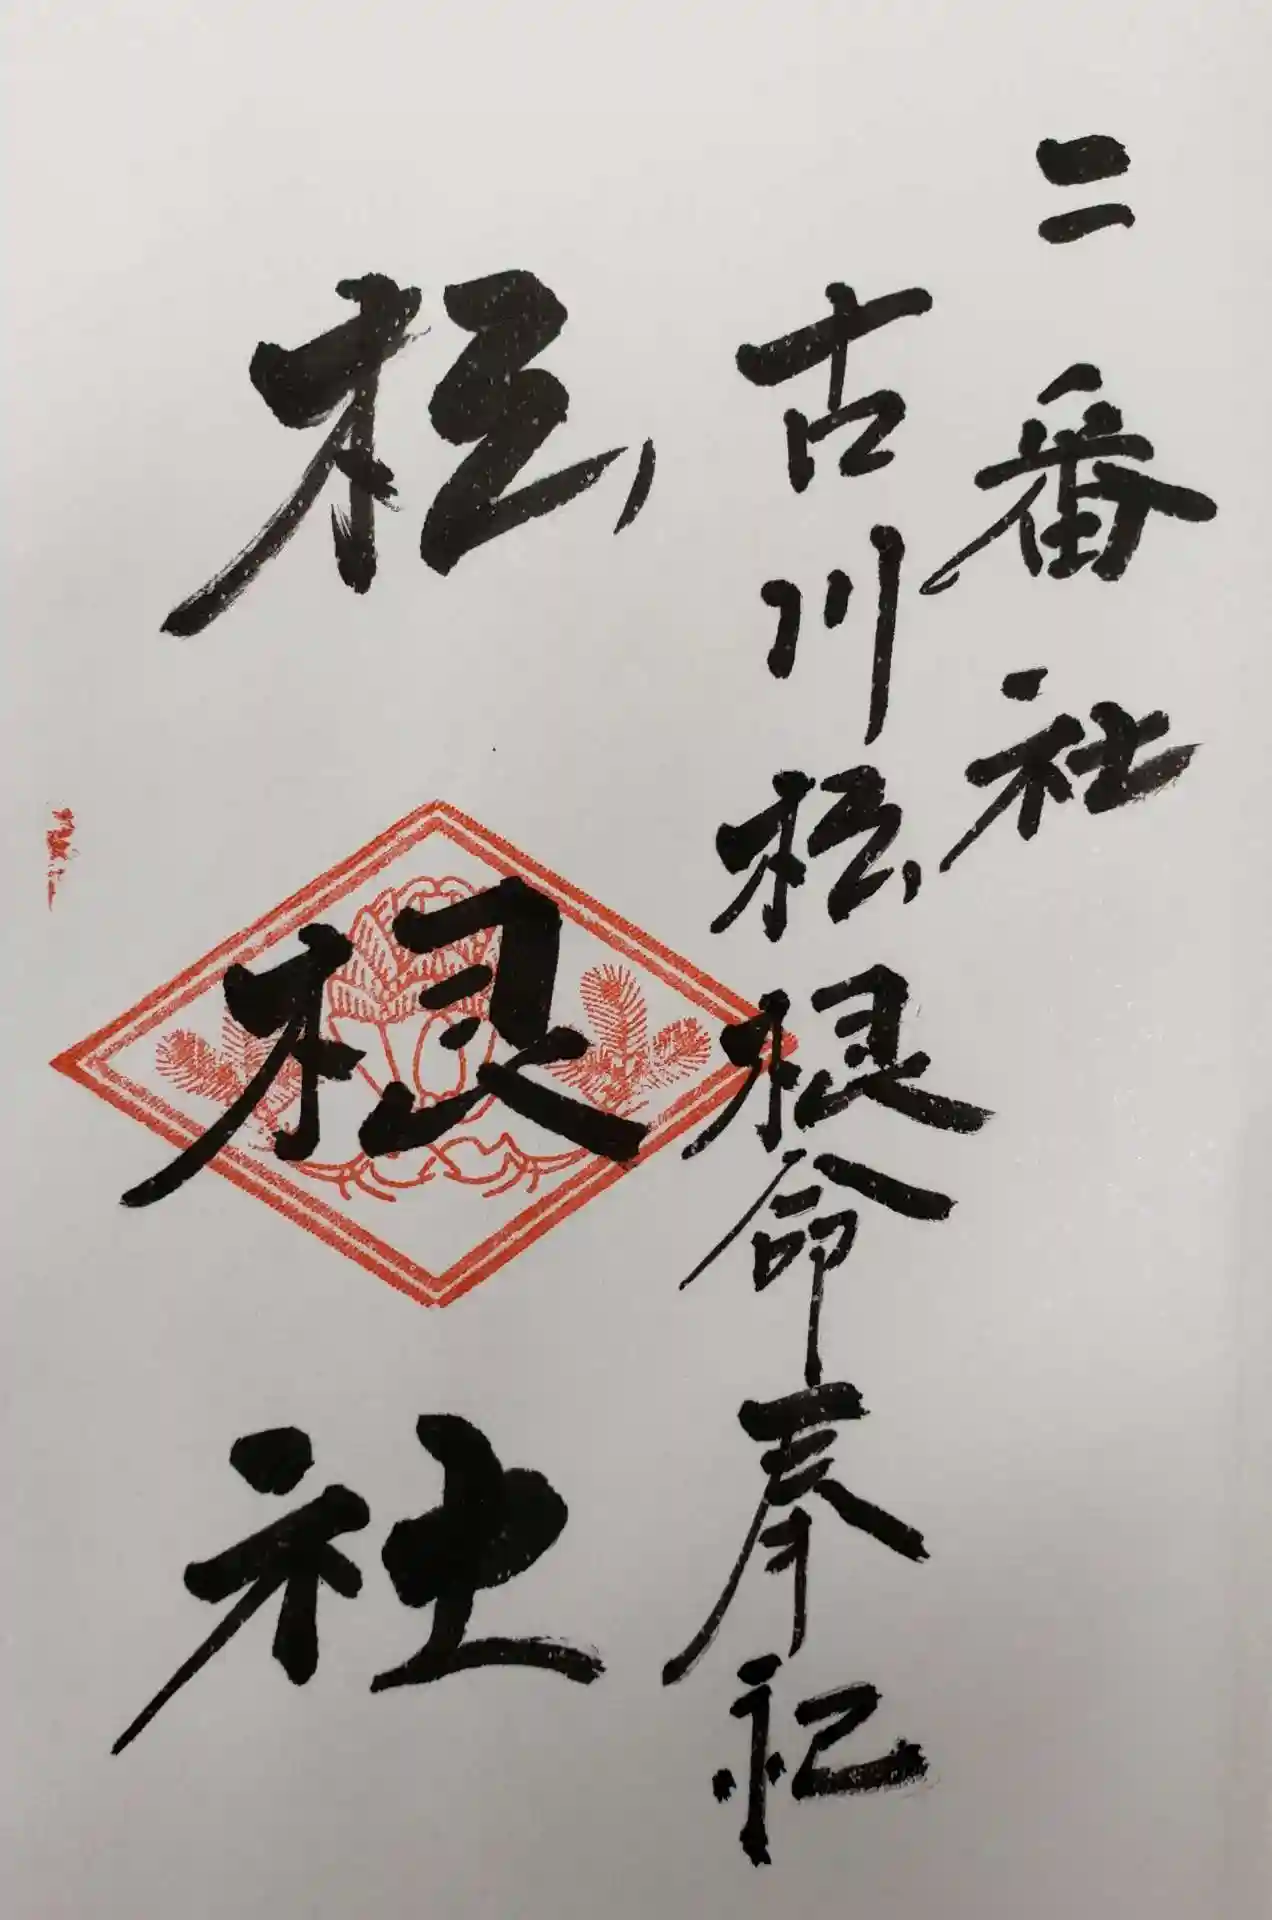 二番社
古川松根命奉祀
松根社